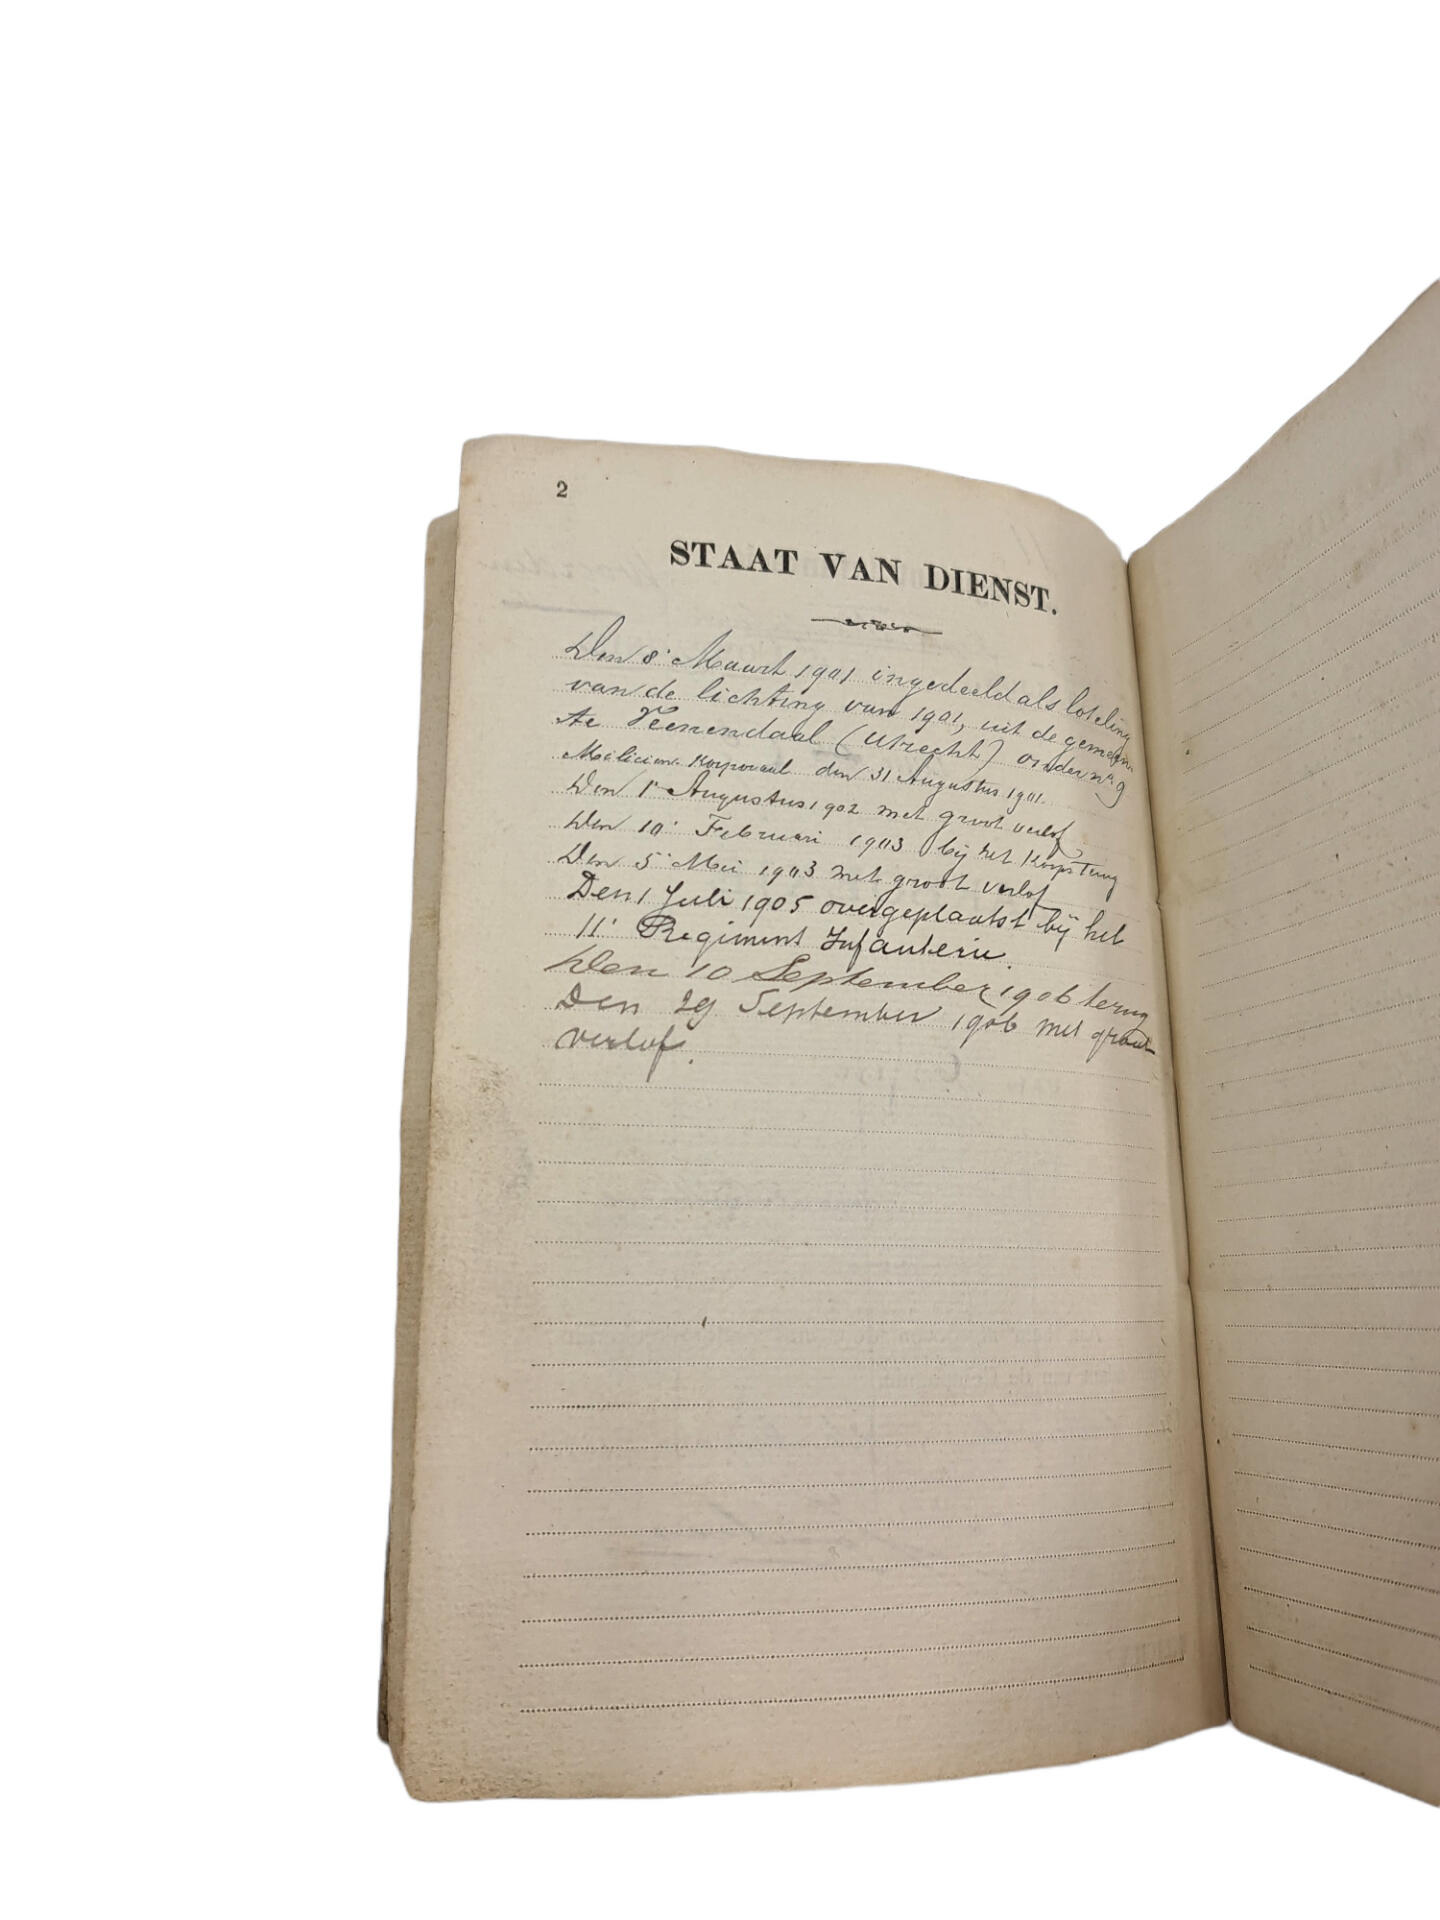 2
STAAT VAN DIENST.
Den 8e Maart 1901 ingedeeld als loteling
van de lichting van 1901, uit de gemeen-
te Veenendaal (Utrecht) onder no. 9
Milicien-Korporaal den 31 Augustus 1901.
Den 1e Augustus 1902 met groot verlof
Den 10e Februari 1903 bij het Korps terug
Den 5e Mei 1903 met groot verlof
Den 1 Juli 1905 overgeplaatst bij het
11e Regiment Infanterie.
Den 10 September 1906 terug
Den 29 September 1906 met groot
verlof.